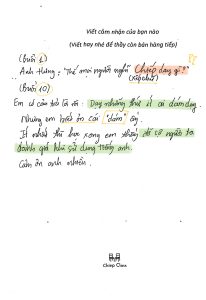 Viết cảm nhận của bạn nào
(Viết hay nhé để thầy còn bán hàng tiếp)
(Buổi 1)
Anh Hưng: "Thế mọi người nghĩ Chiep dạy gì?"
(Buổi 10)
Em có câu trả lời rồi: Dạy những thứ ít ai dám dạy.
Nhưng em biết ơn cái "dám" ấy.
Ít nhất thì học xong em không để sợ người ta
đánh giá khi sử dụng tiếng anh.
Cảm ơn anh nhiều.
Chiep Class